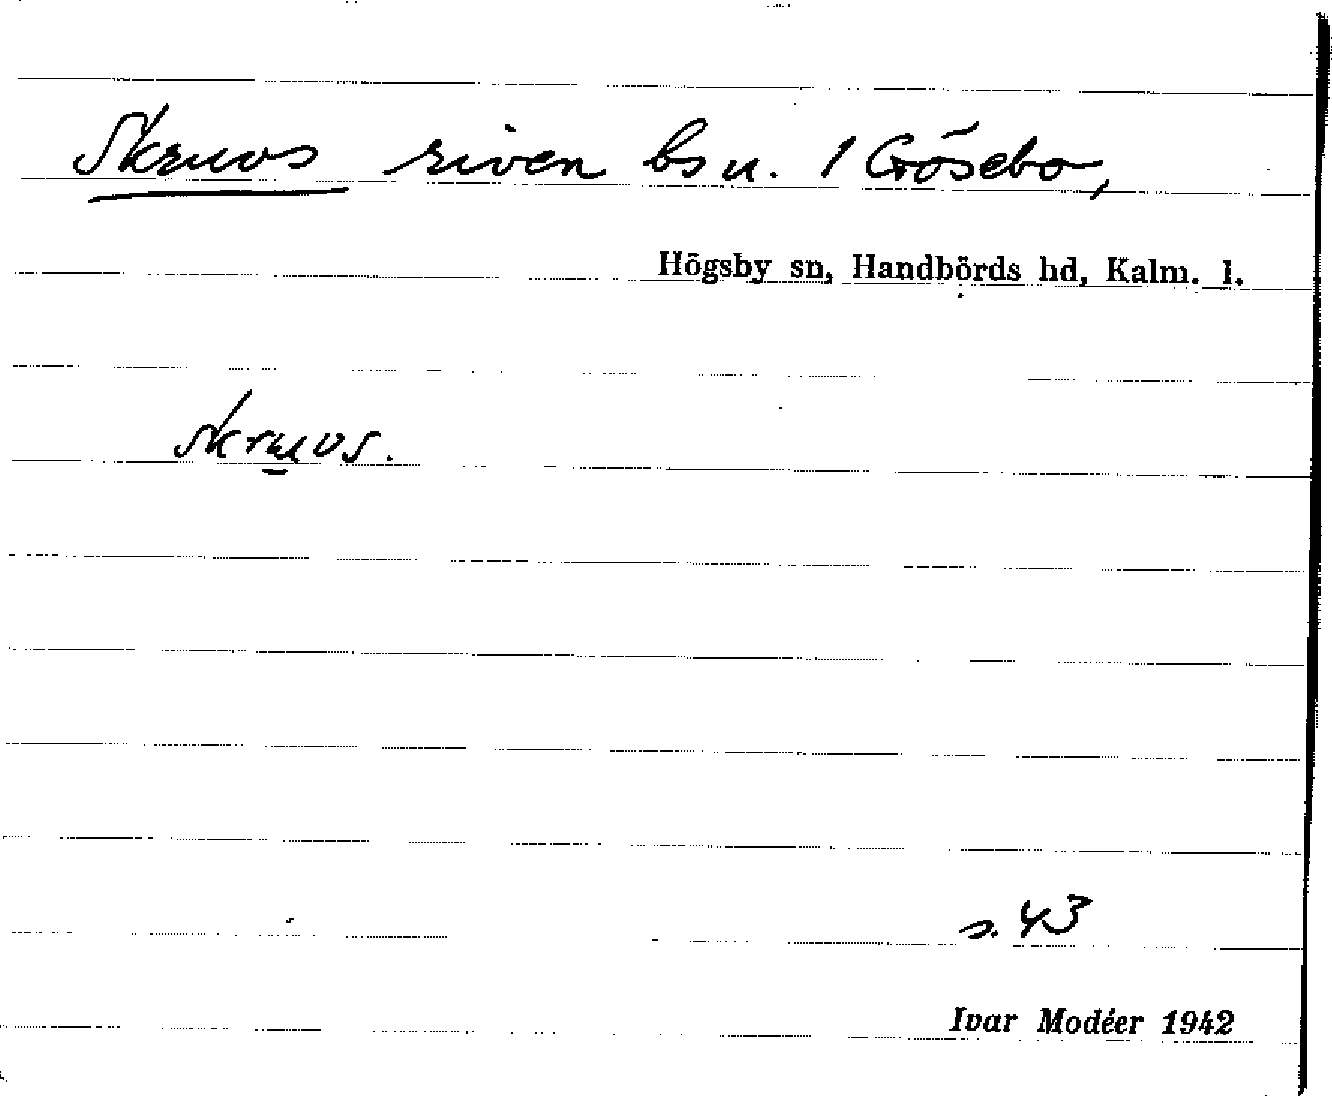 Skruvs riven bsu. 1 Grösebo,
Högsby sn, Handbörds hd, Kalm. l.
skruvs.
s. 43
Ivar Modéer 1942